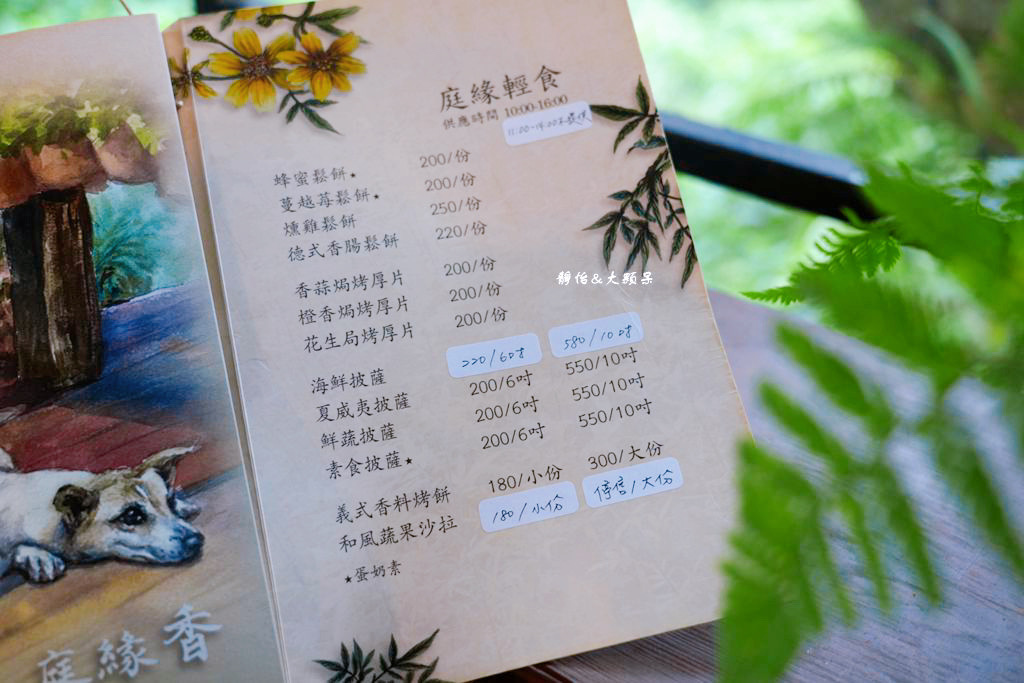 庭緣輕食
供應時間 10:00-16:00
11:00-14:00不提供
蜂蜜鬆餅★ 200/份
蔓越莓鬆餅★ 200/份
燻雞鬆餅 250/份
德式香腸鬆餅 220/份
香蒜焗烤厚片 200/份
橙香焗烤厚片 200/份
花生局烤厚片 200/份
海鮮披薩 220/6吋 580/10吋
夏威夷披薩 200/6吋 550/10吋
鮮蔬披薩 200/6吋 550/10吋
素食披薩★ 200/6吋 550/10吋
義式香料烤餅 180/小份 300/大份
和風蔬果沙拉 180/小份 停售/大份
★蛋奶素
靜怡&大顆呆
庭緣香